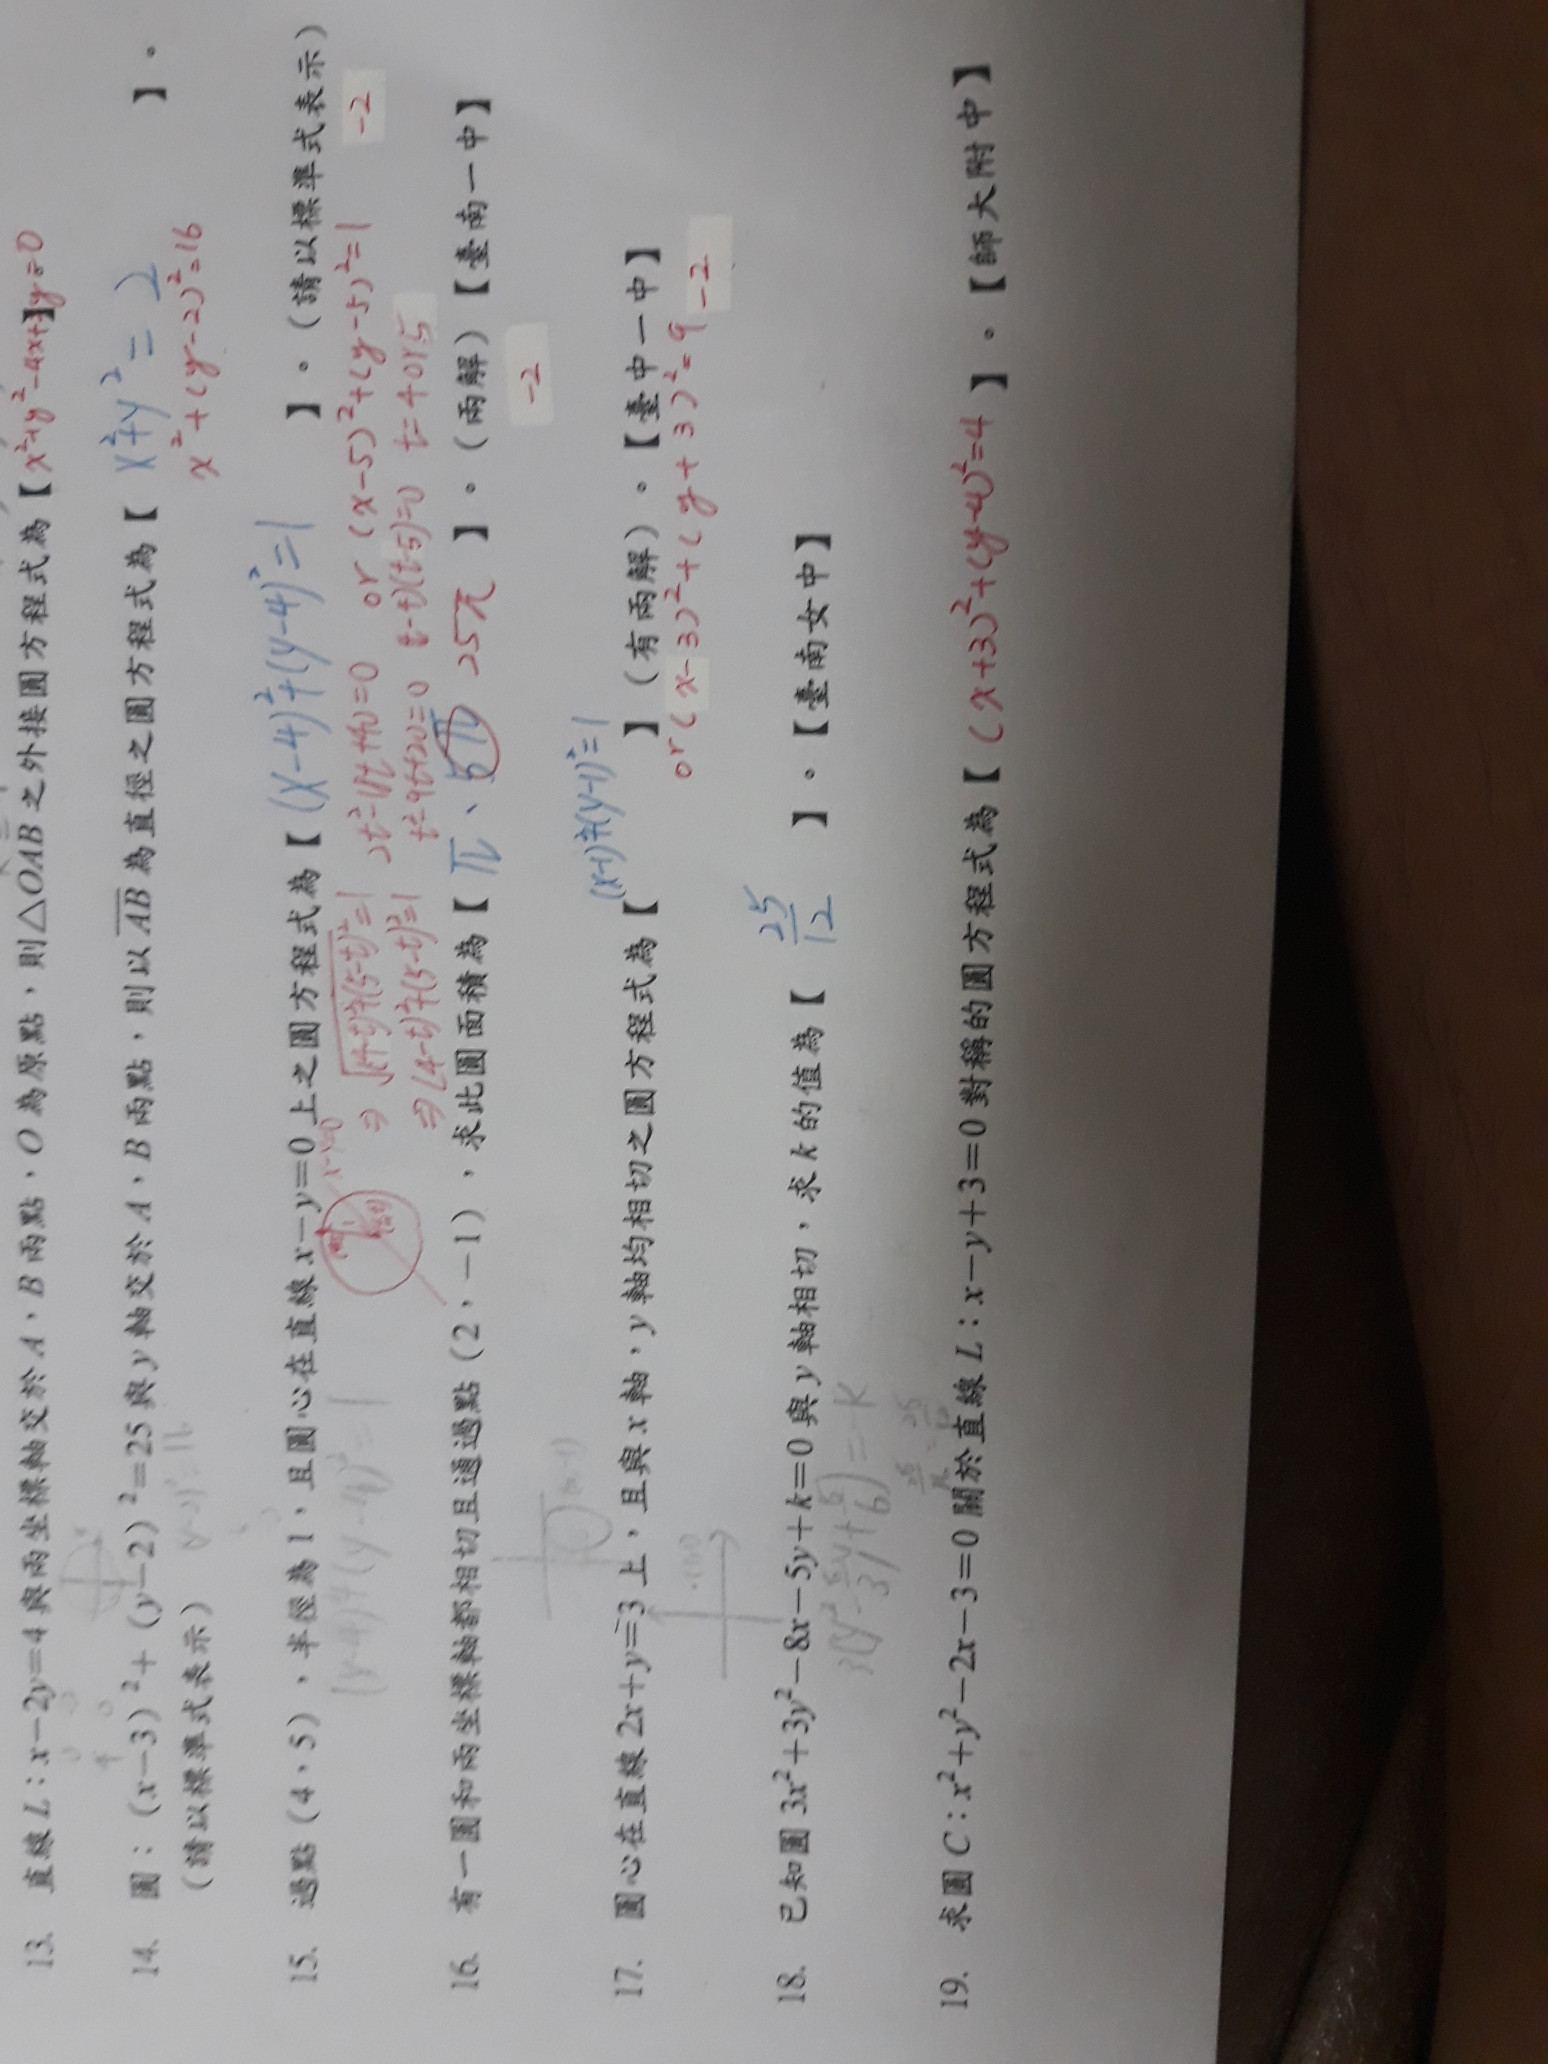 13. 直線 L：x－2y＝4 與兩坐標軸交於 A，B 兩點，O 為原點，則△OAB 之外接圓方程式為【x²+y²-4x+2y=0】
14. 圓：(x－3)²＋(y－2)²＝25 與 y 軸交於 A，B 兩點，則以 AB 為直徑之圓方程式為【 x²+y²=2 】。
(請以標準式表示)
x²+(y-2)²=16
15. 過點(4，5)，半徑為 1，且圓心在直線 x－y＝0 上之圓方程式為【 (x-4)²+(y-4)²=1 】。(請以標準式表示)
or (x-5)²+(y-5)²=1
-2
⇒ √(4-t)²+(5-t)²=1
⇒ (4-t)²+(5-t)²=1
t²-9t+20=0
t=4 or 5
16. 有一圓和兩坐標軸都相切且通過點(2，－1)，求此圓面積為【 π、5π 25π 】。(兩解)【臺南一中】
-2
17. 圓心在直線 2x＋y＝3 上，且與 x 軸，y 軸均相切之圓方程式為【 (x-1)²+(y-1)²=1 】(有兩解)。【臺中一中】
or (x-3)²+(y+3)²=9
-2
18. 已知圓 3x²＋3y²－8x－5y＋k＝0 與 y 軸相切，求 k 的值為【 25/12 】。【臺南女中】
19. 求圓 C：x²＋y²－2x－3＝0 關於直線 L：x－y＋3＝0 對稱的圓方程式為【 (x+3)²+(y-4)²=4 】。【師大附中】